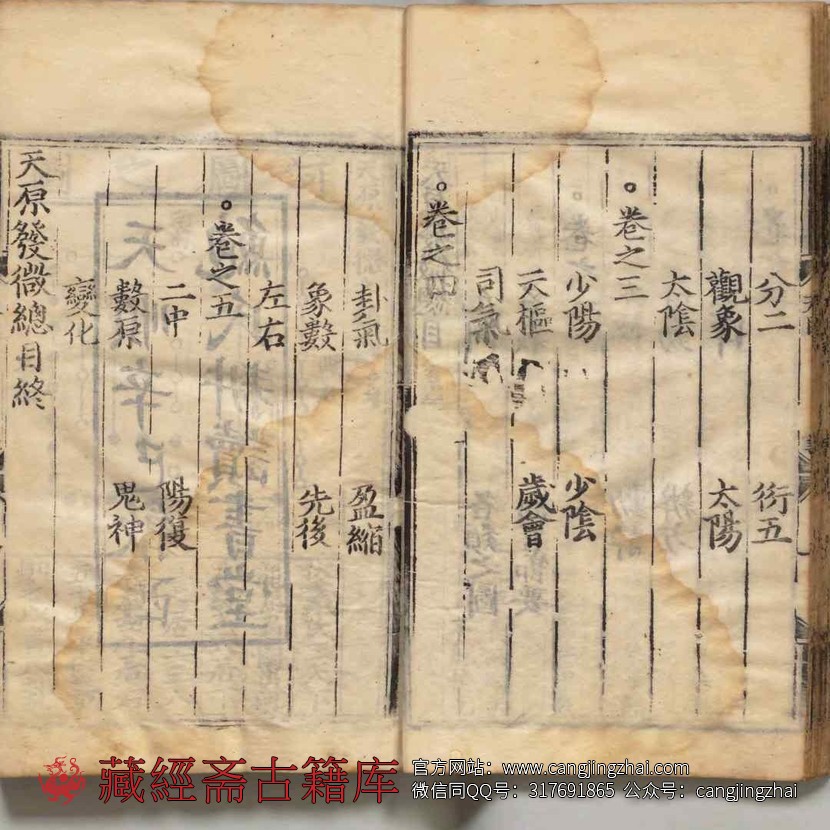 分二　衍五
觀象　太陽
太陰
卷之三
少陽　少陰
天樞　歲會
司氣
卷之四
卦氣　盈縮
象數　先後
左右
卷之五
二中　陽復
數原　鬼神
變化
天原發微總目終
藏經斋古籍库
官方网站：www.cangjingzhai.com
微信同QQ号：317691865 公众号：cangjingzhai